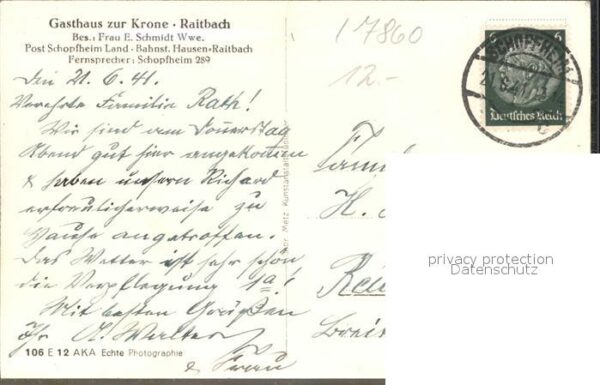 Gasthaus zur Krone · Raitbach
Bes.: Frau E. Schmidt Wwe.
Post Schopfheim Land · Bahnst. Hausen-Raitbach
Fernsprecher: Schopfheim 289
17860
12.-
6
6
SCHOPFHEIM
Deutsches Reich
Den 21.6.41.
Verehrte Familie Rath!
Wir sind am Donnerstag
Abend gut hier angekommen
& haben unsern Richard
erfreulicherweise zu
Hause angetroffen.
Das Wetter ist sehr schön
die Verpflegung 1a!
Mit besten Grüßen
Ihr A. Walter
& Frau
Metz Kunstanstalt
H.
106 E 12 AKA Echte Photographie
privacy protection
Datenschutz